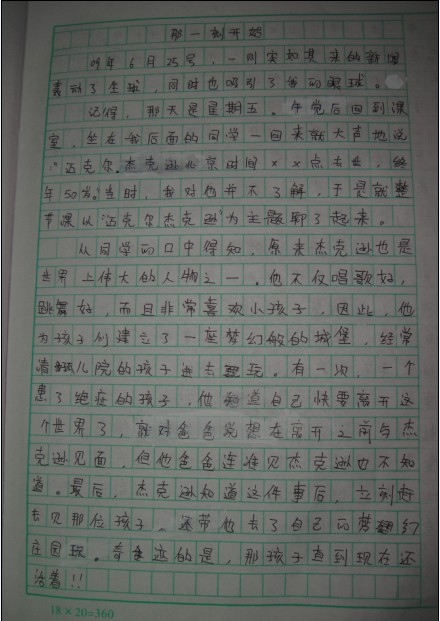 那一刻开始
09年6月25号，一则突如其来的新闻
轰动了全球，同时也吸引了我的眼球。
记得，那天是星期五。午觉后回到课
室，坐在我后面的同学一回来就大声地说
：“迈克尔.杰克逊北京时间××点去世，终
年50岁。”当时，我对他并不了解，于是就整
节课以“迈克尔杰克逊”为主题聊了起来。
从同学的口中得知，原来杰克逊也是
世界上伟大的人物之一。他不仅唱歌好，
跳舞好，而且非常喜欢小孩子，因此，他
为孩子们建立了一座梦幻般的城堡，经常
请孤儿院的孩子进去玩。有一次，一个
患了绝症的孩子，他知道自己快要离开这
个世界了，就对爸爸说想在离开之前与杰
克逊见面，但他爸爸连谁见杰克逊也不知
道。最后，杰克逊知道这件事后，立刻赶
去见那位孩子。还带他去了自己的梦幻
庄园玩。奇迹的是，那孩子直到现在还
活着!!
18×20=360